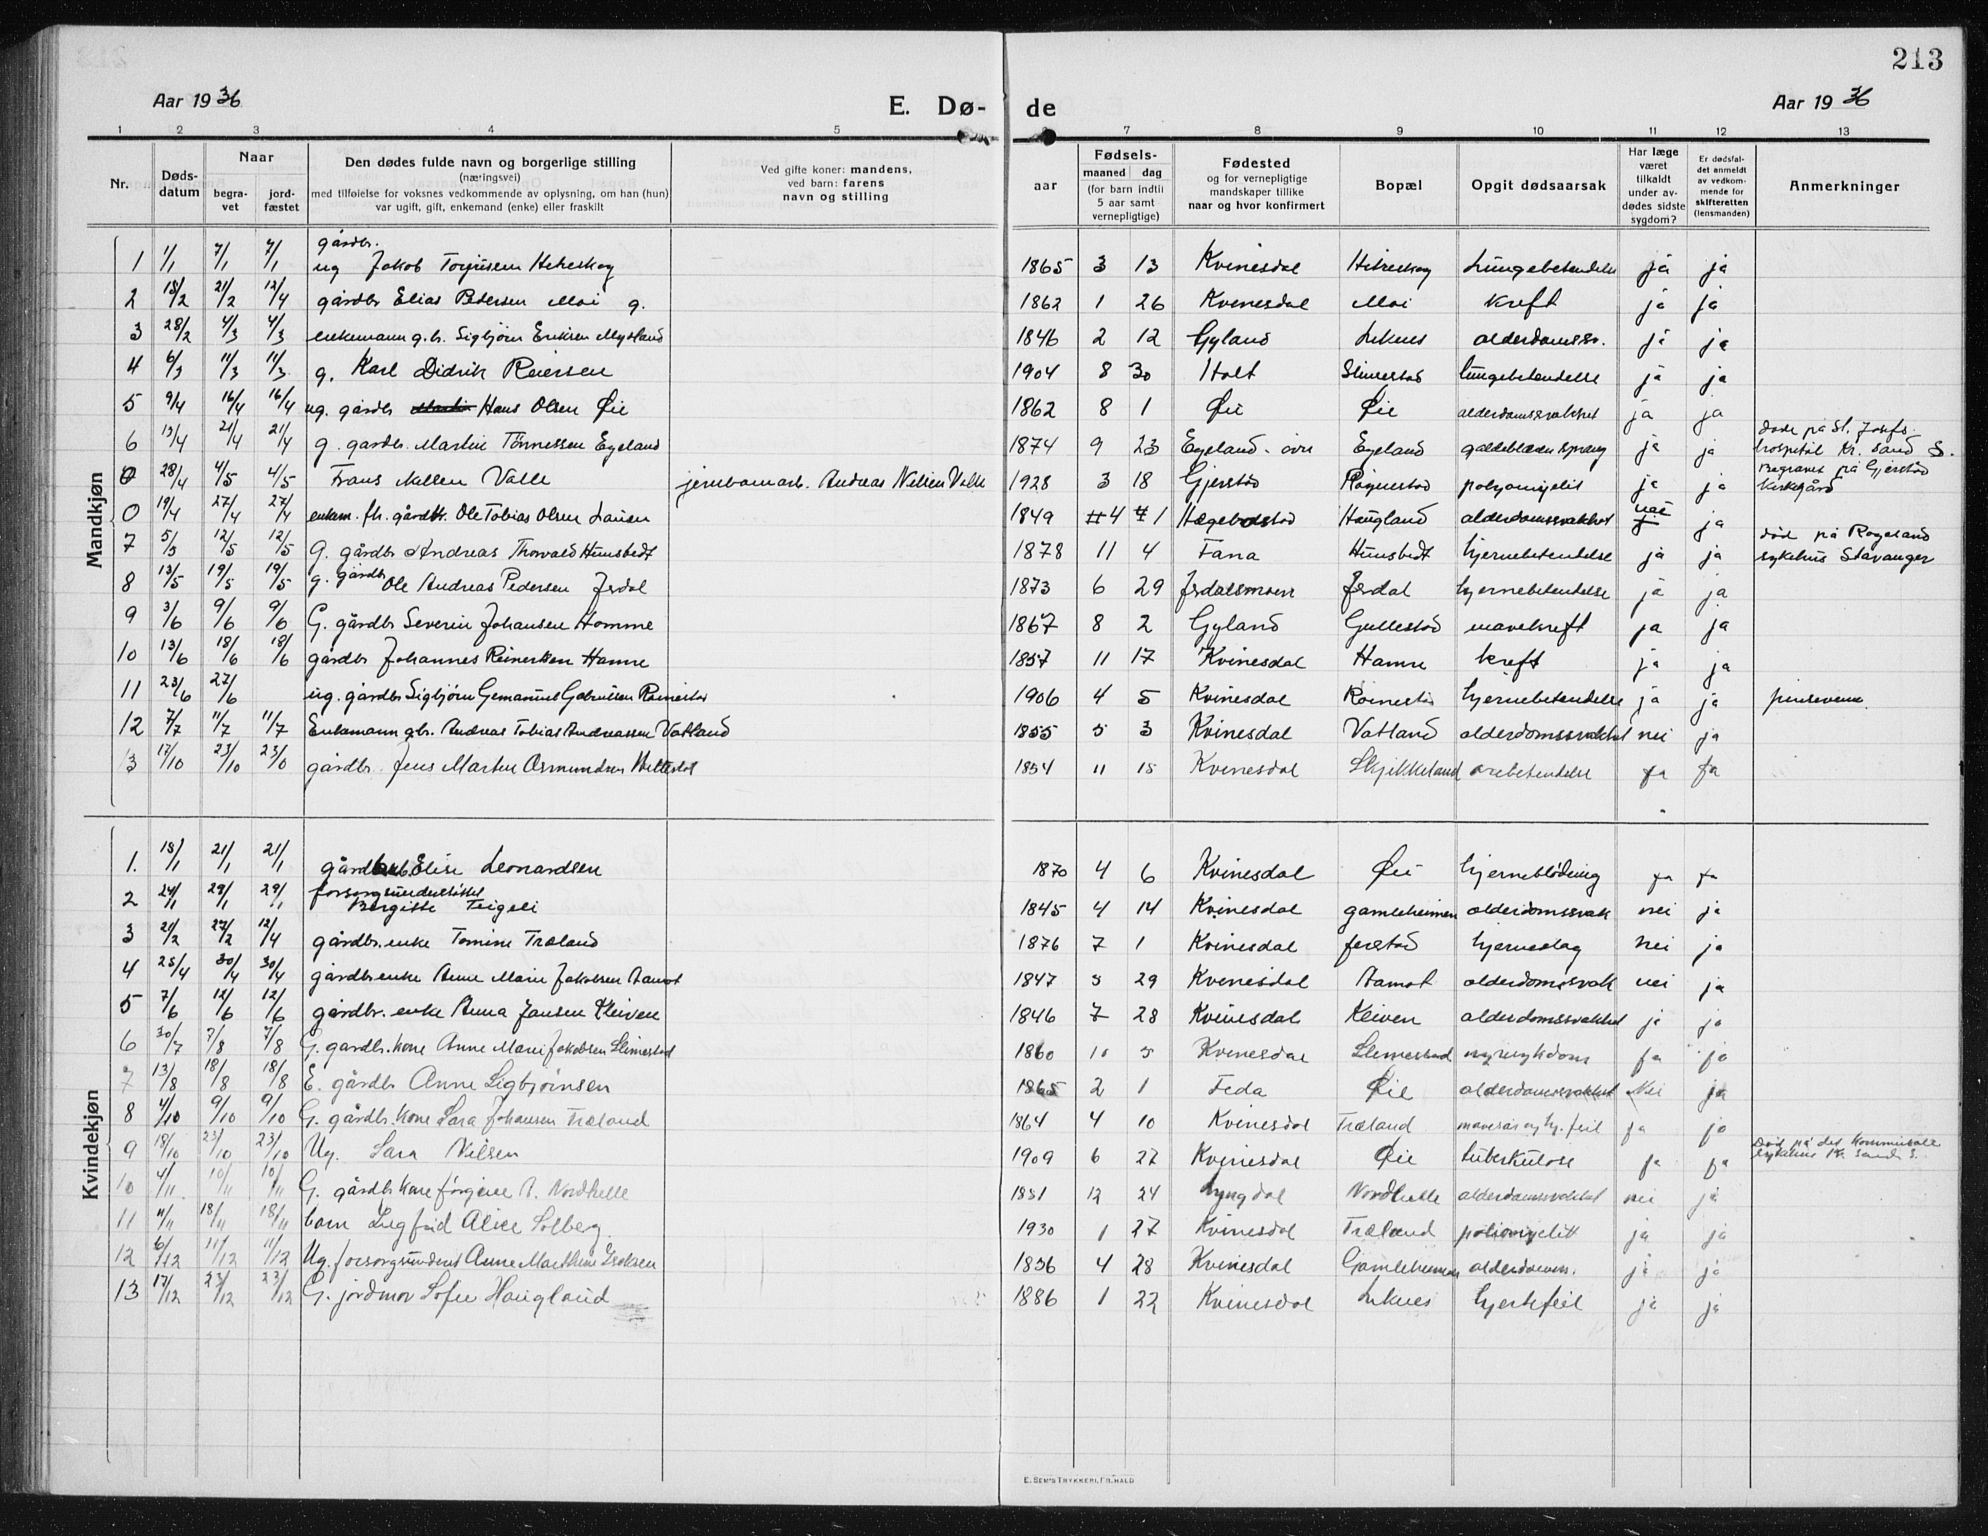 213
Aar 1936 E. Dø- de Aar 1936
1 2 3 4 5 7 8 9 10 11 12 13
Nr. Døds-datum Naar begra-vet jord-fæstet Den dødes fulde navn og borgerlige stilling (næringsvei) med tilføielse for voksnes vedkommende av oplysning, om han (hun) var ugift, gift, enkemand (enke) eller fraskilt Ved gifte koner: mandens, ved barn: farens navn og stilling aar Fødsels- maaned dag (for barn indtil 5 aar samt vernepligtige) Fødested og for vernepligtige mandskaper tillike naar og hvor konfirmert Bopæl Opgit dødsaarsak Har læge været tilkaldt under av-dødes sidste sygdom? Er dødsfal-det anmeldt av vedkom-mende for skifteretten (lensmanden) Anmerkninger
Mandkjøn
gårdbr.
1 1/1 7/1 7/1 ug Jakob 1865 3 13 Kvinesdal Lungebetendelse ja ja
2 18/2 21/2 12/4 gårdbr Elias Pedersen Moi g. 1862 1 26 Kvinesdal Moi kreft ja ja
3 28/2 4/3 4/3 enkemann g.br. Sigbjørn Eriksen 1846 2 12 Gyland Liknes alderdomssv. ja ja
4 6/3 11/3 11/3 g. Karl Didrik Reiersen 1904 8 30 Holt Slimestad lungebetendelse ja ja
5 9/4 16/4 16/4 ug. gårdbr Hans Olsen Øie 1862 8 1 Øie Øie alderdomssvakhet ja ja
6 13/4 21/4 21/4 g. gardbr. Martin Tønnessen Egeland 1874 9 23 Egeland - øvre Egeland galdeblæren sprang ja ja døde på St. Josefs hospital Kr. sand S.
0 28/4 4/5 4/5 Frans Nelsen Valle jernbanearb. Andreas Nelsen Valle 1928 3 18 Gjerstad poliomyelit ja ja Begravet på Gjerstad Kirkegård
0 19/4 27/4 27/4 enkem. fh. gårdbr. Ole Tobias Olsen 1849 4 1 Hægebostad Haugland alderdomssvakhet nei ja
7 5/5 12/5 12/5 G. gårdbr Andreas Thorvald Hunsbedt 1878 11 4 Fana Hunsbedt hjernebetendelse ja ja død på Rogaland sykehus Stavanger
8 13/5 19/5 19/5 g. gårdbr Ole Andreas Pedersen Jerdal 1873 6 29 Jerdal hjernebetendelse ja ja
9 3/6 9/6 9/6 G. gårdbr Severin Johansen Homme 1867 8 2 Gyland Gullestad mavekreft ja ja
10 13/6 18/6 18/6 gårdbr Johannes Reinertsen Hamre 1857 11 17 Kvinesdal Hamre kreft ja ja
11 23/6 27/6 ug. gårdbr Sigbjørn 1906 4 5 Kvinesdal hjernebetendelse ja ja
12 7/7 11/7 11/7 Enkemann gbr. Andreas Tobias Andreassen Vatland 1855 5 3 Kvinesdal Vatland alderdomssvakhet nei ja
13 17/10 23/10 23/10 gårdbr. Jens Martin Osmundsen 1854 11 15 Kvinesdal ørebetendelse ja ja
Kvindekjøn
1. 18/1 21/1 21/1 Elise Leonardsen 1870 4 6 Kvinesdal Øie hjerneblødning ja ja
2 24/1 29/1 29/1 forsorgsunderstøttet Bergitte Teigeli 1845 4 14 Kvinesdal gamleheimen alderdomssvak nei ja
3 21/2 27/2 12/4 gårdbr. enke Tomine Træland 1876 7 1 Kvinesdal hjerneslag nei ja
4 25/4 30/4 30/4 gårdbr enke Anne Marie Jakobsen Aamot 1847 5 29 Kvinesdal Aamot alderdomssvak nei ja
5 7/6 12/6 12/6 gårdbr. enke Anna Jansen Kleiven 1846 7 28 Kvinesdal Kleiven alderdomssvakhet ja ja
6 30/7 7/8 7/8 G. gardbr. kone Anne Marie Jakobsen Slimestad 1860 10 5 Kvinesdal Slimestad nyresykdom ja ja
7 13/8 18/8 18/8 E. gårdbr Anne Sigbjørnsen 1865 2 1 Feda Øie alderdomssvakhet Nei ja
8 4/10 9/10 9/10 G. gårdbr. kone Sara Johansen Træland 1864 4 10 Kvinesdal Træland ja ja
9 18/10 23/10 23/10 Ug. Sara Nilsen 1909 6 27 Kvinesdal Øie tuberkulose ja ja Død på det kommunale sykehus Kr. sand S.
10 4/11 10/11 10/11 G. gårdbr kone Jørgine A. Nordhelle 1851 12 24 Lyngdal Nordhelle alderdomssvakhet nei ja
11 11/11 18/11 18/11 barn Sigfrid Alice Solberg. 1930 1 27 Kvinesdal Træland poliomyelitt ja ja
12 6/12 11/12 11/12 Ug. forsorgsunderst Anne Marthine Isaksen 1856 4 28 Kvinesdal Gamleheimen alderdomsv. ja ja
13 17/12 23/12 23/12 G. jordmor Sofie Haugland 1886 1 22 Kvinesdal Liknes hjertefeil ja ja
E. SEM'S TRYKKERI, FR.HALD